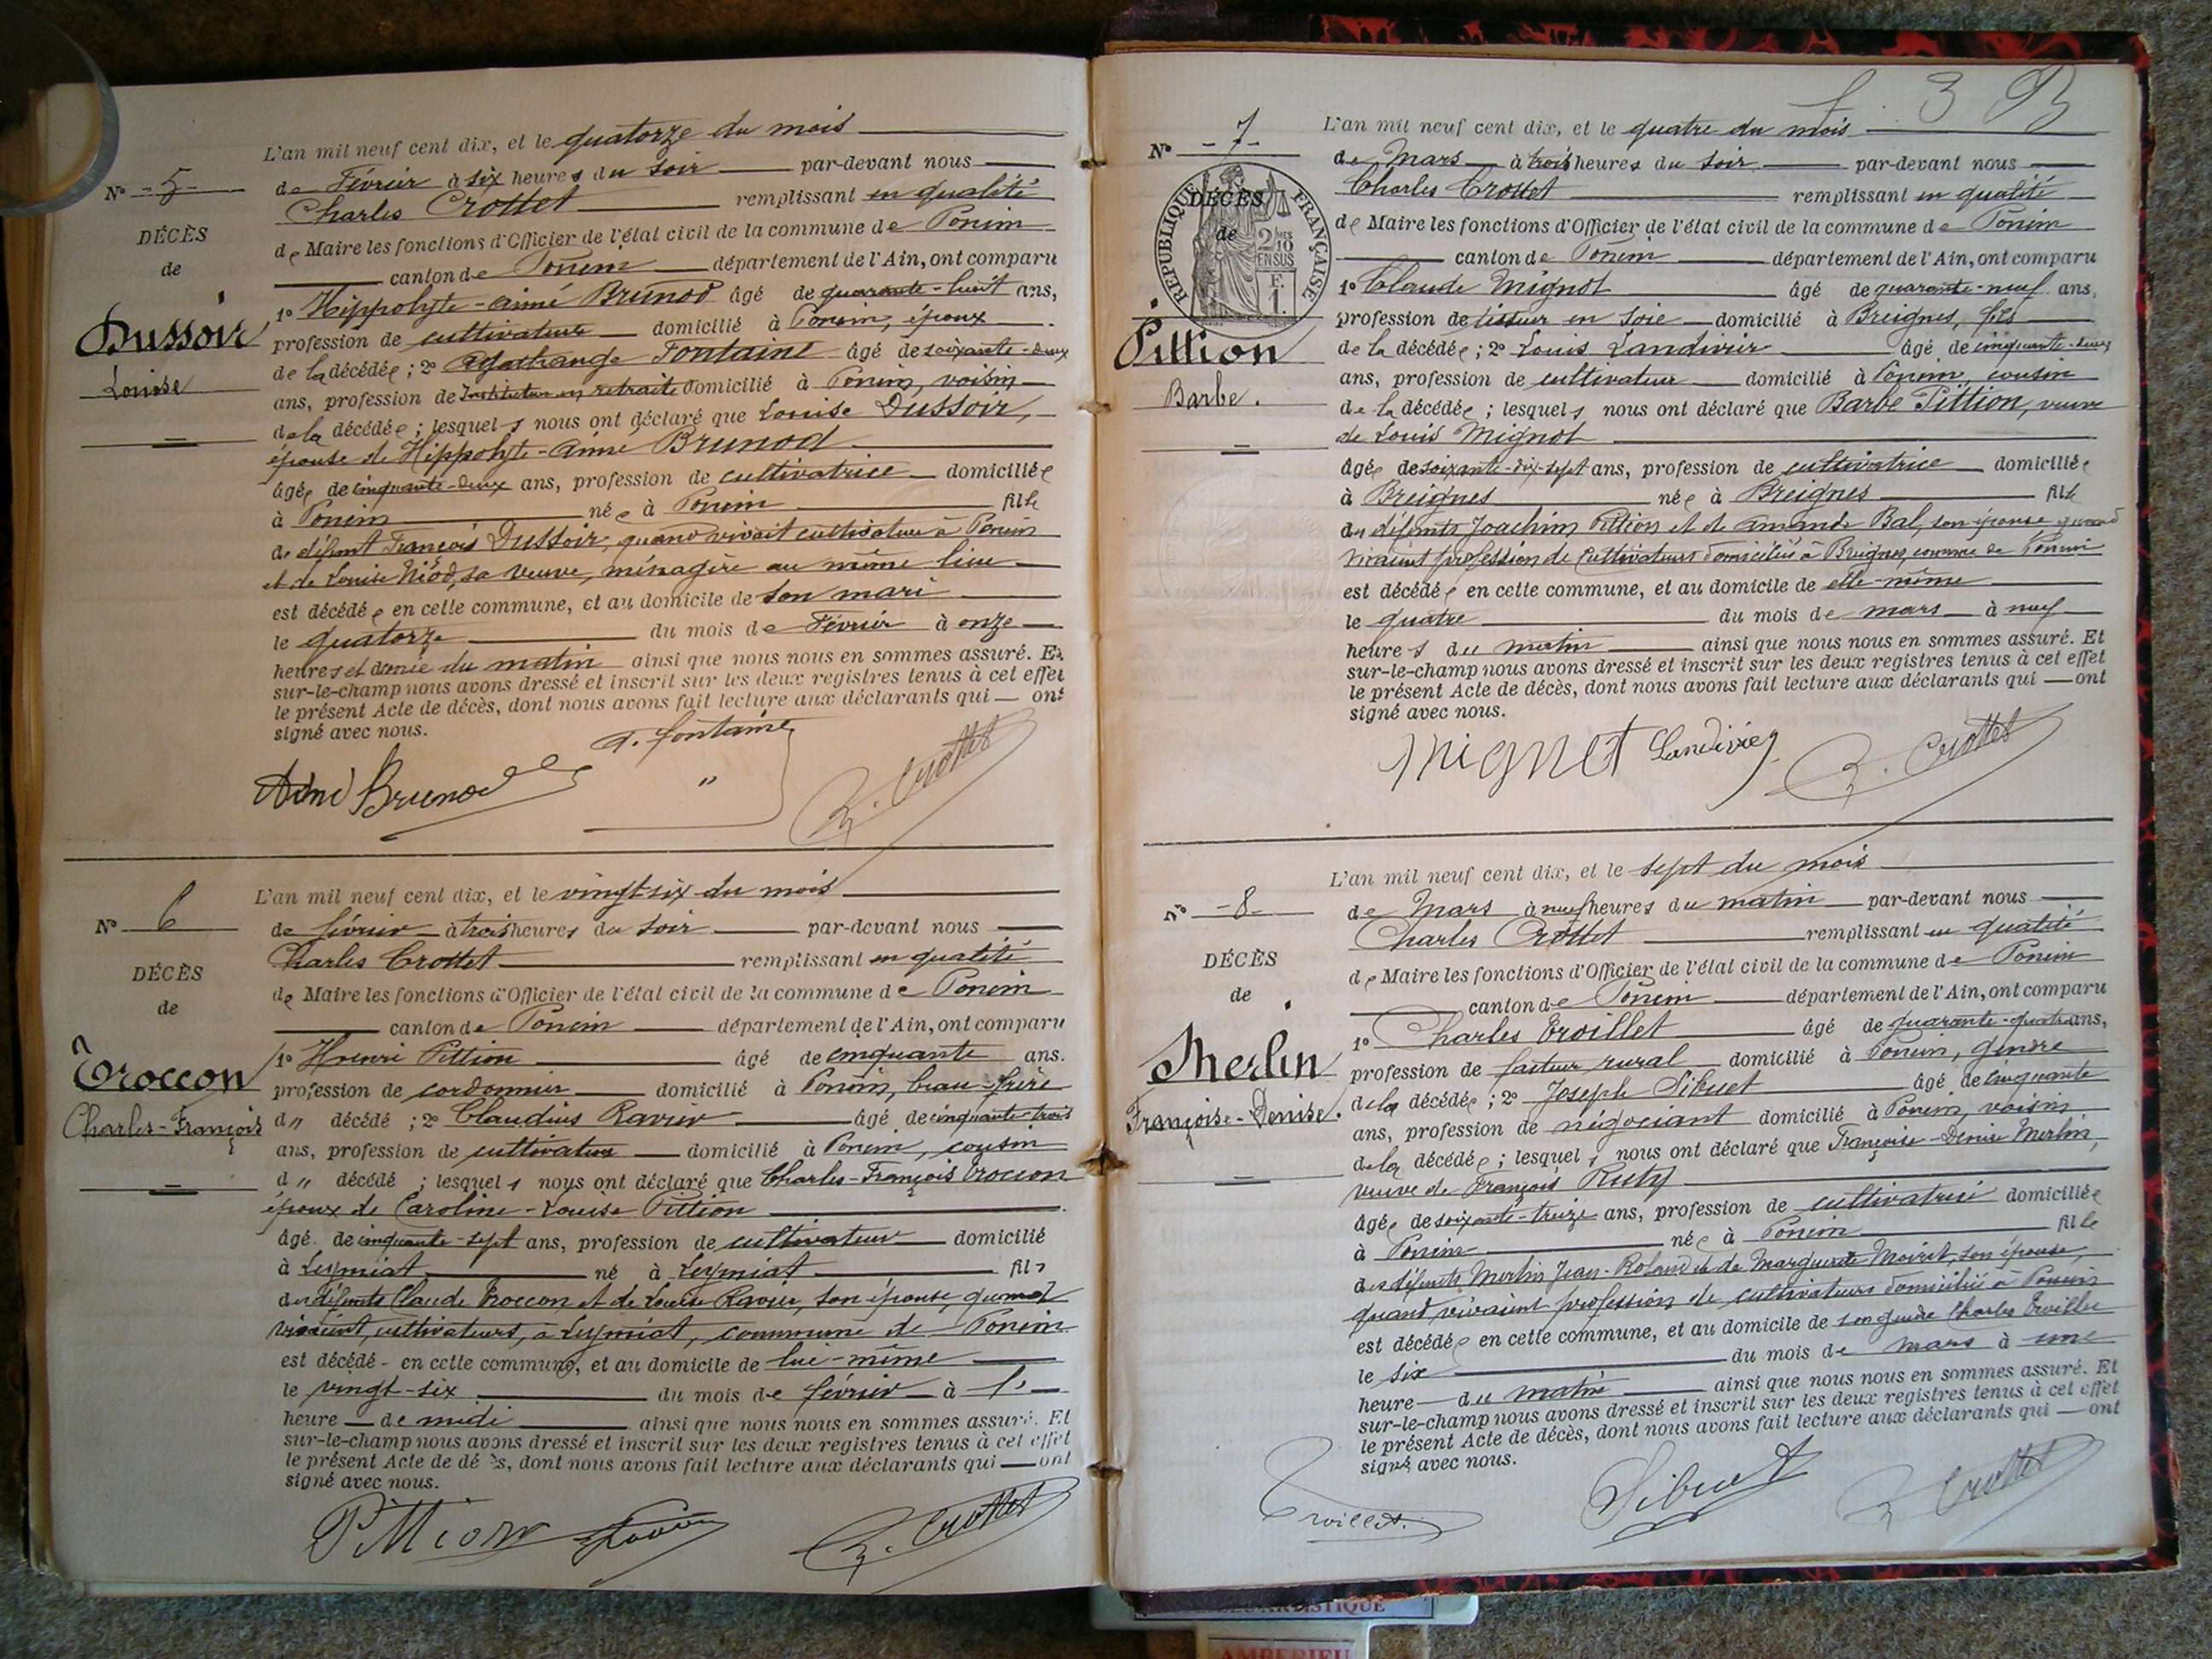 L'an mil neuf cent dix, et le quatorze du mois
N° -5-
de Février à six heures du soir par-devant nous
Charles Crottet remplissant en qualité
DÉCÈS
de Maire les fonctions d'Officier de l'état civil de la commune de Poncin
de
canton de Poncin département de l'Ain, ont comparu
1° Hippolyte-Aimé Brunod âgé de quarante-huit ans,
Dussoir
profession de cultivateur domicilié à Poncin, époux
de la décédée ; 2° Fontaine âgé de soixante-deux
Louise
ans, profession de Instituteur en retraite domicilié à Poncin, voisin
de la décédée ; lesquels nous ont déclaré que Louise Dussoir,
épouse de Hippolyte-Aimé Brunod
âgée de cinquante-deux ans, profession de cultivatrice domiciliée
à Poncin née à Poncin fille
de défunt François Dussoir, quand vivait cultivateur à Poncin
et de Louise Niod, sa veuve, ménagère au même lieu
est décédée en cette commune, et au domicile de son mari
le quatorze du mois de Février à onze
heures et demie du matin ainsi que nous nous en sommes assuré. Et
sur-le-champ nous avons dressé et inscrit sur les deux registres tenus à cet effet
le présent Acte de décès, dont nous avons fait lecture aux déclarants qui ont
signé avec nous.
A. Fontaine
Aimé Brunod
C. Crottet
L'an mil neuf cent dix, et le vingt-six du mois
N° 6
de février à trois heures du soir par-devant nous
Charles Crottet remplissant en qualité
DÉCÈS
de Maire les fonctions d'Officier de l'état civil de la commune de Poncin
de
canton de Poncin département de l'Ain, ont comparu
1° Henri Pittion âgé de cinquante ans.
Troccon
profession de cordonnier domicilié à Poncin, beau-frère
Charles-François
d" décédé ; 2° Claudius Ravier âgé de cinquante-trois
ans, profession de cultivateur domicilié à Poncin, cousin
d" décédé ; lesquels nous ont déclaré que Charles-François Troccon
époux de Caroline-Louise Pittion
âgé de cinquante-sept ans, profession de cultivateur domicilié
à Leymiat né à Leymiat fils
des défunts Claude Troccon et de Louise Ravier, son épouse, quand
vivaient, cultivateurs, à Leymiat, commune de Poncin
est décédé - en cette commune, et au domicile de lui-même
le vingt-six du mois de février à 1
heure de midi ainsi que nous nous en sommes assuré. Et
sur-le-champ nous avons dressé et inscrit sur les deux registres tenus à cet effet
le présent Acte de décès, dont nous avons fait lecture aux déclarants qui ont
signé avec nous.
Pittion Ravier C. Crottet
f. 3
L'an mil neuf cent dix, et le quatre du mois
N° -7-
de Mars à trois heures du soir par-devant nous
DÉCÈS
Charles Crottet remplissant en qualité
RÉPUBLIQUE FRANÇAISE
de
2/10 EN SUS
1 F.
de Maire les fonctions d'Officier de l'état civil de la commune de Poncin
canton de Poncin département de l'Ain, ont comparu
1° Claude Mignot âgé de quarante-neuf ans,
profession de tisseur en soie domicilié à Breignes, fils
Pittion
de la décédée ; 2° Louis Landivier âgé de cinquante-deux
ans, profession de cultivateur domicilié à Poncin, cousin
Barbe.
de la décédée ; lesquels nous ont déclaré que Barbe Pittion, veuve
de Louis Mignot
âgée de soixante-dix-sept ans, profession de cultivatrice domiciliée
à Breignes née à Breignes fille
des défunts Joachim Pittion et de Amande Bal, son épouse quand
vivaient profession de cultivateurs domiciliés à Breignes, commune de Poncin
est décédée en cette commune, et au domicile de elle-même
le quatre du mois de mars à neuf
heures du matin ainsi que nous nous en sommes assuré. Et
sur-le-champ nous avons dressé et inscrit sur les deux registres tenus à cet effet
le présent Acte de décès, dont nous avons fait lecture aux déclarants qui ont
signé avec nous.
Mignot Landivier C. Crottet
L'an mil neuf cent dix, et le sept du mois
N° -8-
de Mars à neuf heures du matin par-devant nous
Charles Crottet remplissant en qualité
DÉCÈS
de Maire les fonctions d'Officier de l'état civil de la commune de Poncin
de
canton de Poncin département de l'Ain, ont comparu
1° Charles Troillet âgé de quarante-quatre ans,
Merlin
profession de facteur rural domicilié à Poncin, gendre
Françoise-Denise.
de la décédée ; 2° Joseph Sibuet âgé de cinquante
ans, profession de négociant domicilié à Poncin, voisin
de la décédée ; lesquels nous ont déclaré que Françoise-Denise Merlin,
veuve de François Ruty
âgée de soixante-treize ans, profession de cultivatrice domiciliée
à Poncin née à Poncin fille
des défunts Merlin Jean-Roland et de Marguerite Moiret, son épouse,
quand vivaient profession de cultivateurs domiciliés à Poncin
est décédée en cette commune, et au domicile de son gendre Charles Troillet
le six du mois de mars à une
heure du matin ainsi que nous nous en sommes assuré. Et
sur-le-champ nous avons dressé et inscrit sur les deux registres tenus à cet effet
le présent Acte de décès, dont nous avons fait lecture aux déclarants qui ont
signé avec nous.
Troillet. Sibuet C. Crottet
AMBERIEU